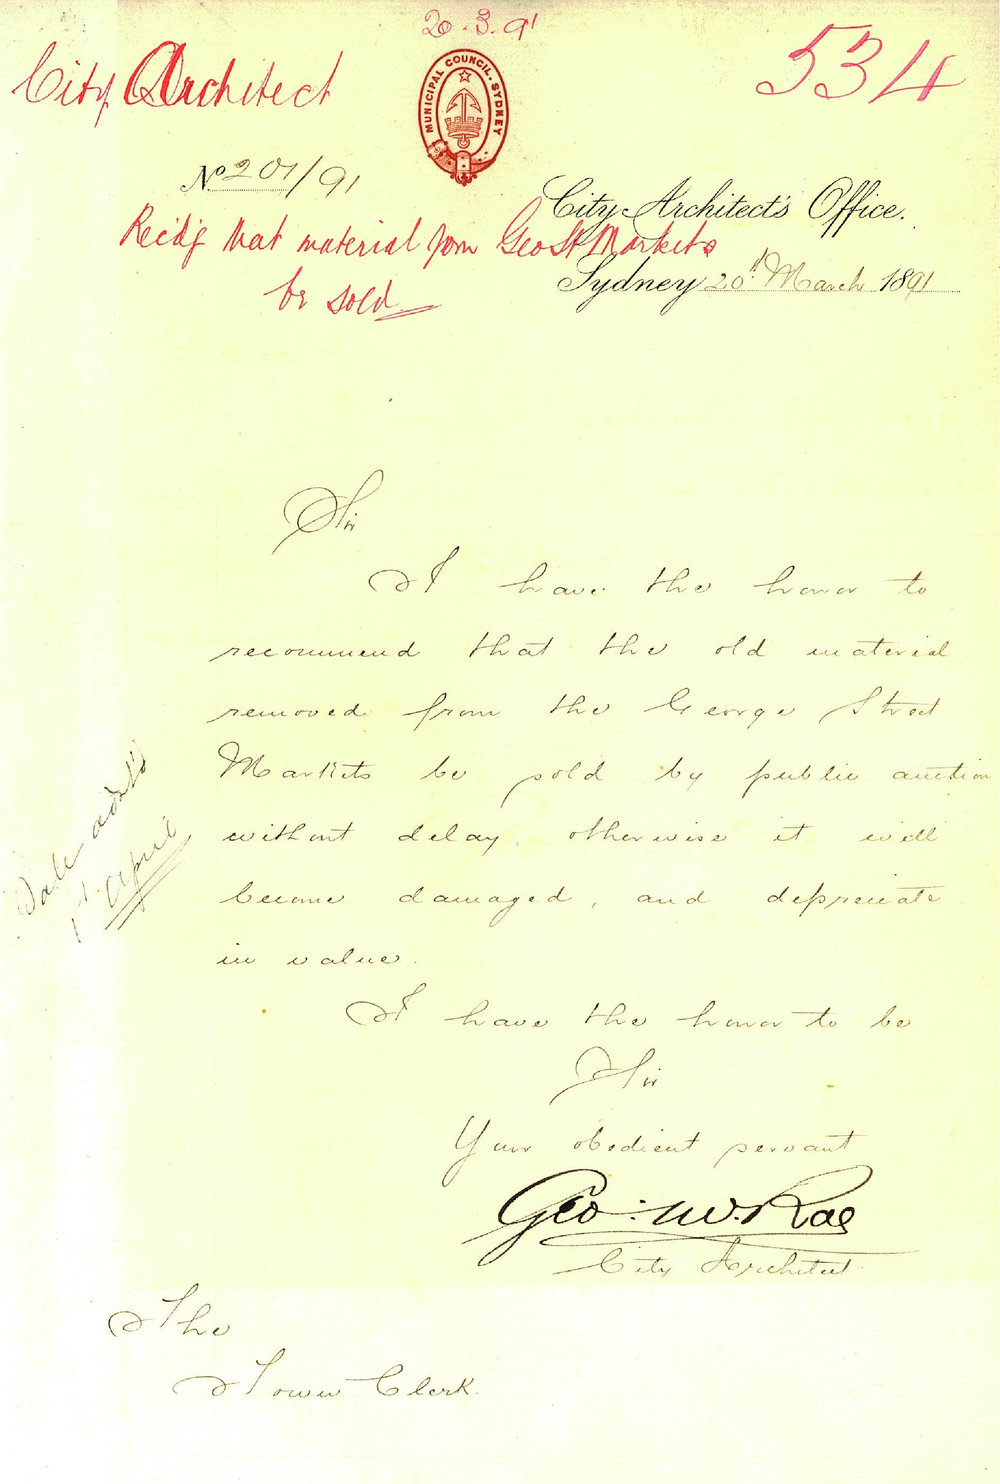 20.3.91
City Architect
534
MUNICIPAL COUNCIL. SYDNEY
No 201/91
City Architect's Office.
Rec'd'g that material from Geo St Markets
be sold
Sydney 20th March 1891
Sir
I have the honor to
recommend that the old material
removed from the George Street
Markets be sold by public auction
without delay, otherwise it will
become damaged, and depreciate
in value.
Sale
1st April
I have the honor to be
Sir
Your obedient servant
Geo: McRae
City Architect
The
Town Clerk.